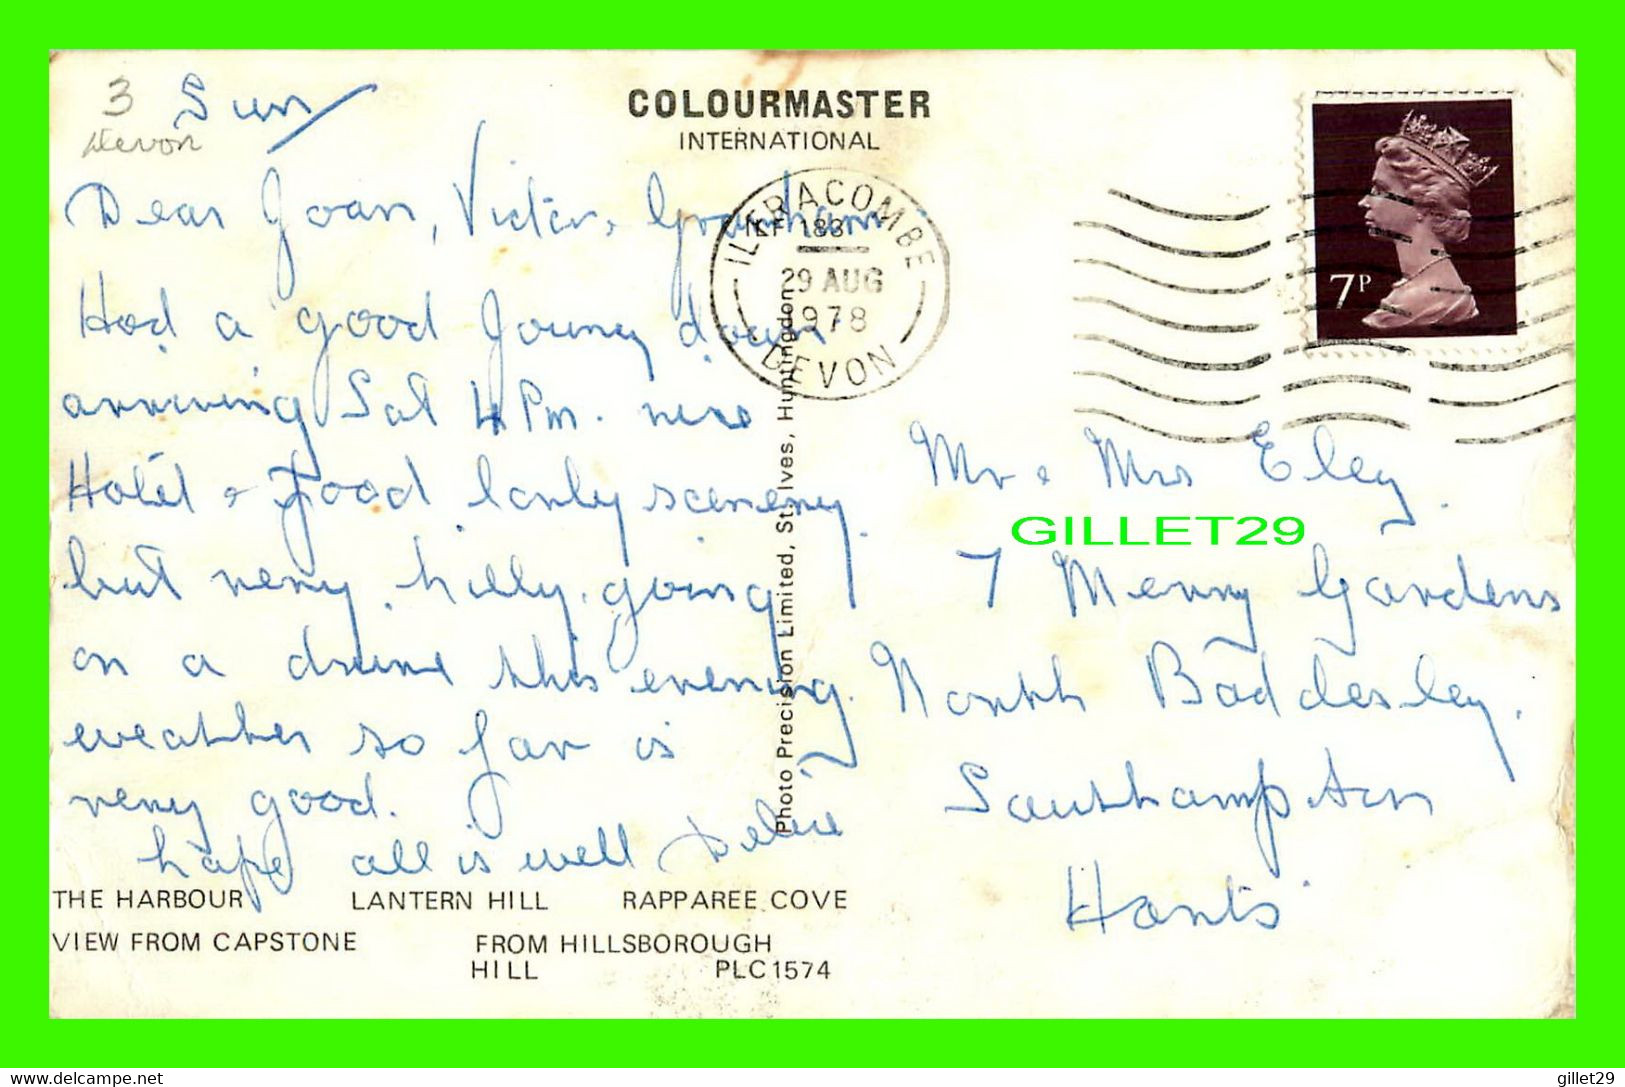 3
Devon
Sun
COLOURMASTER
INTERNATIONAL
Dear Joan, Victor, Graham
Had a good Jouney down
arriving Sat 4 Pm. nice
Hotel & food lovly scenery.
but very hilly. going
on a drive this evening.
weather so far is
very good.
hope all is well
ILFRACOMBE
29 AUG
1978
DEVON
7P
Mr & Mrs Eley.
7 Merry Gardens
North Baddesley.
Southampton
Hants
GILLET29
Photo Precision Limited, St. Ives, Huntingdon
THE HARBOUR LANTERN HILL RAPPAREE COVE
VIEW FROM CAPSTONE FROM HILLSBOROUGH
HILL PLC1574
delcampe.net
gillet29